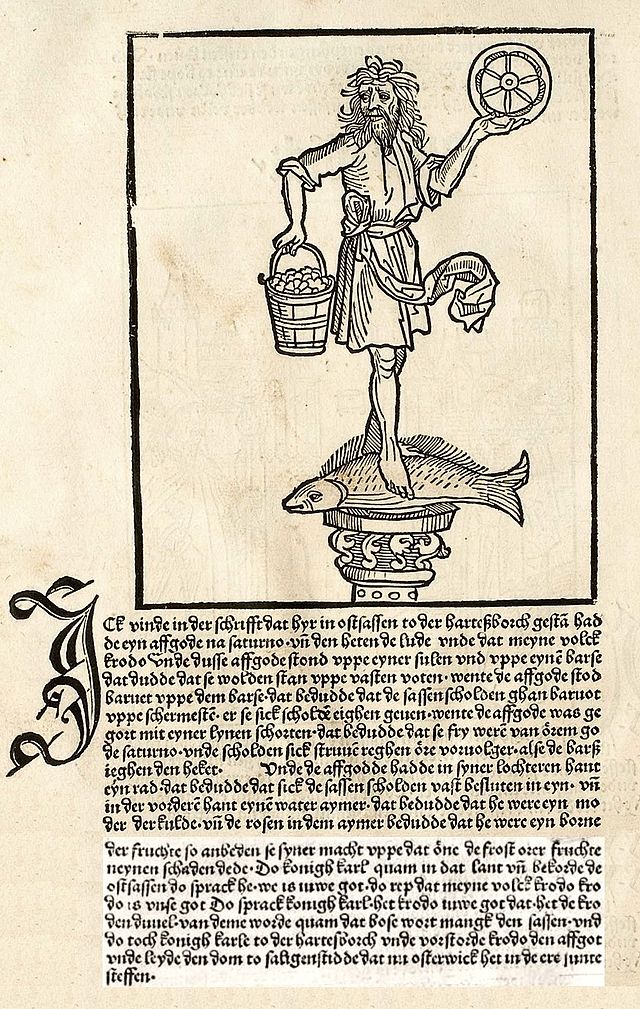 ICk vinde in der schrifft dat hyr in ostsassen to der harteßborch gestā had
de eyn affgode na saturno·vn̄ den heten de lude vnde dat meyne volck
krodo vnde dusse affgode stond vppe eyner sulen vnd vppe eynē barse
dat dudde dat se wolden stan vppe vasten voten·wente de affgode stod
baruet vppe dem barse·dat bedudde dat de sassen scholden ghan baruot
vppe schermestē·er se sick scholdē eighen geuen·wente de affgode was ge
gort mit eyner lynen schorten·dat bedudde dat se fry werē van ōrem go
de saturno·vnde scholden sick struuen reghen ōre voruolger·alse de barß
ieghen den heket· Vnde de affgodde hadde in syner lochteren hant
eyn rad·dat bedudde dat sick de sassen scholden vast besluten in eyn·vn̄
in der vorderē hant eynē water aymer·dat bedudde dat he were eyn mo
der der kulde·vn̄ de rosen in dem aymer bedudde dat he were eyn borne
der fruchte so anbeden se syner macht vppe dat ōne de frost orer fruchte
neynen schaden dede·Do konigh karl quam in dat lant vn̄ bekorde de
ostsassen do sprack he·we is iuwe got·do rep dat meyne volck krodo kro
do is vnse got Do sprack konigh karl·het krodo iuwe got dat·het de kro
den duuel·van deme worde quam dat bose wort mangk den sassen·vnd
do toch konigh karle to der hartesborch vnde vorstorde krodo den affgot
vnde leyde den dom to saligenstidde dat nu osterwick het in de ere sunte
steffen·